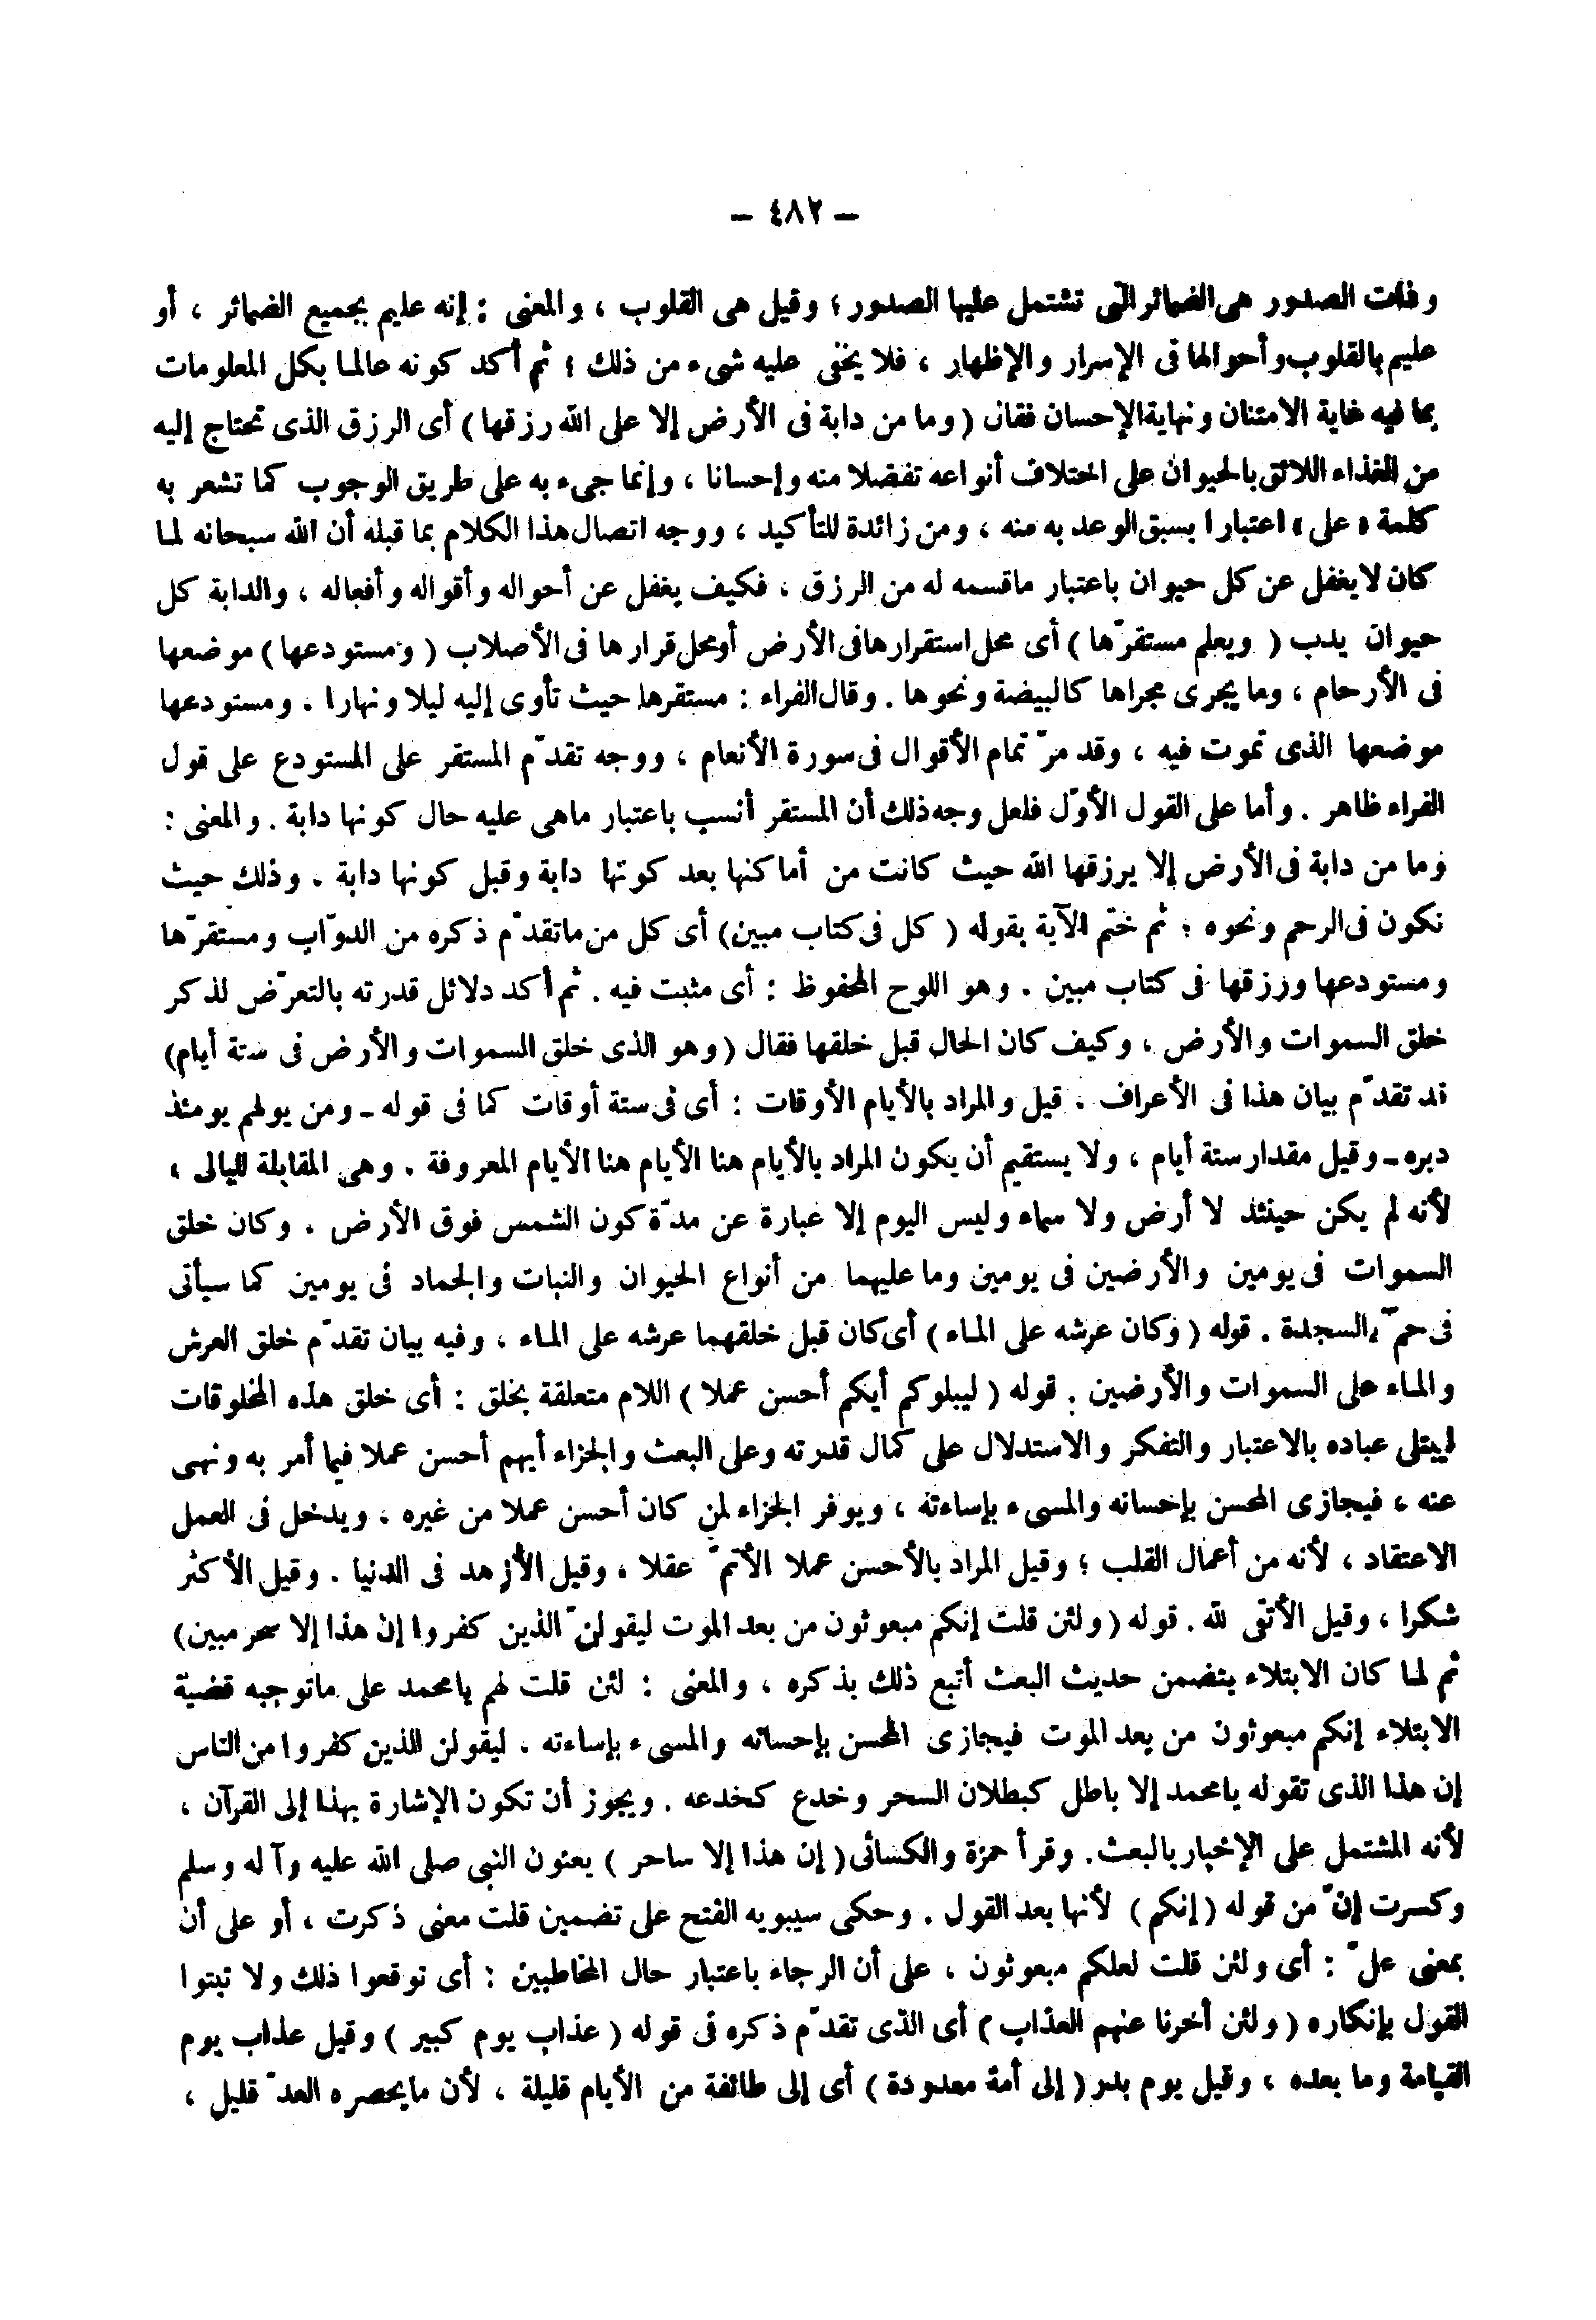 — ٤٨٢ —
وذات الصدور هى الضمائر التى تشتمل عليها الصدور ؛ وقيل هى القلوب ، والمعنى : إنه عليم بجميع الضمائر ، أو
عليم بالقلوب وأحوالها فى الإسرار والإظهار ، فلا يخفى عليه شىء من ذلك ؛ ثم أكد كونه عالما بكل المعلومات
بما فيه غاية الامتنان ونهاية الإحسان فقال ( وما من دابة فى الأرض إلا على الله رزقها ) أى الرزق الذى تحتاج إليه
من الغذاء اللائق بالحيوان على اختلاف أنواعه تفضلا منه وإحسانا ، وإنما جىء به على طريق الوجوب كما تشعر به
كلمة « على » اعتبارا بسبق الوعد به منه ، ومن زائدة للتأكيد ، ووجه اتصال هذا الكلام بما قبله أن الله سبحانه لما
كان لايغفل عن كل حيوان باعتبار ماقسمه له من الرزق ، فكيف يغفل عن أحواله وأقواله وأفعاله ، والدابة كل
حيوان يدب ( ويعلم مستقرّها ) أى محل استقرارها فى الأرض أو محل قرارها فى الأصلاب ( ومستودعها ) موضعها
فى الأرحام ، وما يجرى مجراها كالبيضة ونحوها . وقال الفراء : مستقرها حيث تأوى إليه ليلا ونهارا ، ومستودعها
موضعها الذى تموت فيه ، وقد مرّ تمام الأقوال فى سورة الأنعام ، ووجه تقدّم المستقر على المستودع على قول
الفراء ظاهر . وأما على القول الأوّل فلعل وجه ذلك أن المستقر أنسب باعتبار ماهى عليه حال كونها دابة . والمعنى :
وما من دابة فى الأرض إلا يرزقها الله حيث كانت من أماكنها بعد كونها دابة وقبل كونها دابة . وذلك حيث
تكون فى الرحم ونحوه ؛ ثم ختم الآية بقوله ( كل فى كتاب مبين ) أى كل من ماتقدّم ذكره من الدوّاب ومستقرّها
ومستودعها ورزقها فى كتاب مبين . وهو اللوح المحفوظ : أى مثبت فيه . ثم أكد دلائل قدرته بالتعرّض لذكر
خلق السموات والأرض ، وكيف كان الحال قبل خلقها فقال ( وهو الذى خلق السموات والأرض فى ستة أيام )
قد تقدّم بيان هذا فى الأعراف . قيل والمراد بالأيام الأوقات : أى فى ستة أوقات كما فى قوله ـ ومن يولهم يومئذ
دبره ـ وقيل مقدار ستة أيام ، ولا يستقيم أن يكون المراد بالأيام هنا الأيام هنا الأيام المعروفة . وهى المقابلة لليالى ،
لأنه لم يكن حينئذ لا أرض ولا سماء وليس اليوم إلا عبارة عن مدّة كون الشمس فوق الأرض . وكان خلق
السموات فى يومين والأرضين فى يومين وما عليهما من أنواع الحيوان والنبات والجماد فى يومين كما سيأتى
فى حمّ السجدة . قوله ( وكان عرشه على الماء ) أى كان قبل خلقهما عرشه على الماء ، وفيه بيان تقدّم خلق العرش
والماء على السموات والأرضين . قوله ( ليبلوكم أيكم أحسن عملا ) اللام متعلقة بخلق : أى خلق هذه المخلوقات
ليبتلى عباده بالاعتبار والتفكر والاستدلال على كمال قدرته وعلى البعث والجزاء أيهم أحسن عملا فيما أمر به ونهى
عنه ، فيجازى المحسن بإحسانه والمسىء بإساءته ، ويوفر الجزاء لمن كان أحسن عملا من غيره ، ويدخل فى العمل
الاعتقاد ، لأنه من أعمال القلب ؛ وقيل المراد بالأحسن عملا الأتمّ عقلا ، وقيل الأزهد فى الدنيا . وقيل الأكثر
شكرا ، وقيل الأتقى لله . قوله ( ولئن قلت إنكم مبعوثون من بعد الموت ليقولنّ الذين كفروا إن هذا إلا سحر مبين )
ثم لما كان الابتلاء يتضمن حديث البعث أتبع ذلك بذكره ، والمعنى : لئن قلت لهم يامحمد على ماتوجبه قضية
الابتلاء إنكم مبعوثون من بعد الموت فيجازى المحسن بإحسانه والمسىء بإساءته ، ليقولن الذين كفروا من الناس
إن هذا الذى تقوله يامحمد إلا باطل كبطلان السحر وخدع كخدعه . ويجوز أن تكون الإشارة بهذا إلى القرآن ،
لأنه المشتمل على الإخبار بالبعث . وقرأ حمزة والكسائى ( إن هذا إلا ساحر ) يعنون النبى صلى الله عليه وآله وسلم
وكسرت إنّ من قوله ( إنكم ) لأنها بعد القول . وحكى سيبويه الفتح على تضمين قلت معنى ذكرت ، أو على أن
بمعنى علّ : أى ولئن قلت لعلكم مبعوثون ، على أن الرجاء باعتبار حال المخاطبين : أى توقعوا ذلك ولا تبتوا
القول بإنكاره ( ولئن أخرنا عنهم العذاب ) أى الذى تقدّم ذكره فى قوله ( عذاب يوم كبير ) وقيل عذاب يوم
القيامة وما بعده ، وقيل يوم بدر ( إلى أمة معدودة ) أى إلى طائفة من الأيام قليلة ، لأن مايحصره العدّ قليل ،